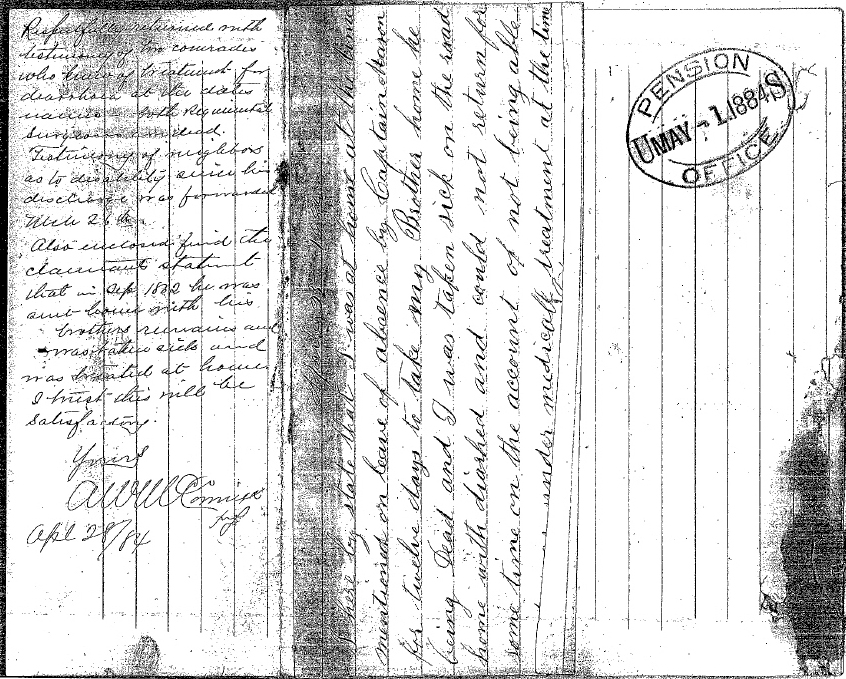 Respectfully returned with
testimony of two comrades
who knew of treatment for
diarrhoea at the dates
named both Regimental
Surgeons dead.
Testimony of neighbors
as to disability since his
discharge was forwarded
Mch 26th
Also enclosed find the
claimants statement
that in Apl 1862 he was
sent home with his
brothers remains and
was taken sick and
was treated at home
I trust this will be
Satisfactory.
Yours
A W McCormick
Apl 28/84
I here by state that I was at home at the time
mentioned on leave of absence by Captain Mason
for twelve days to take my Brother home he
being Dead and I was taken sick on the road
home with diorhed and could not return for
some time on the account of not being able
under medicall treatment at the time
PENSION
U MAY - 1 1884 S
OFFICE